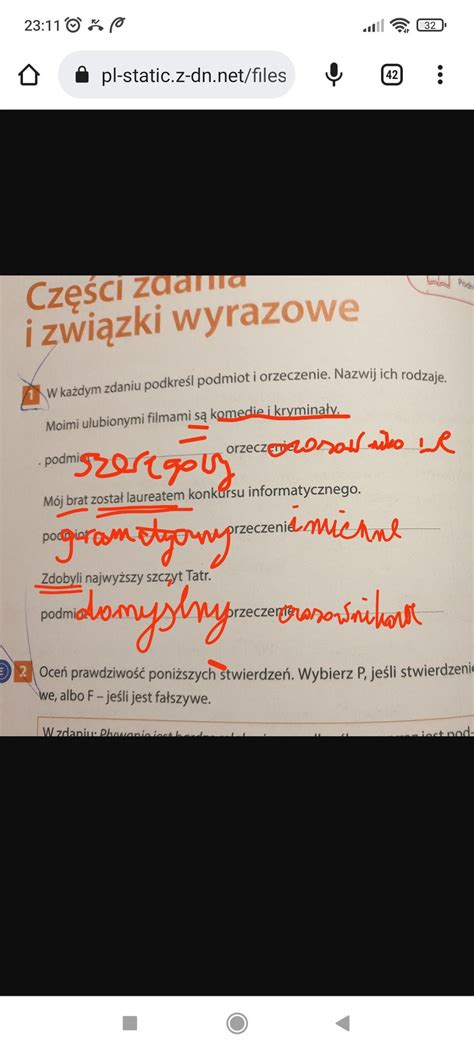 23:11 32
pl-static.z-dn.net/files 42
Części zdania
i związki wyrazowe
1 W każdym zdaniu podkreśl podmiot i orzeczenie. Nazwij ich rodzaje.
Moimi ulubionymi filmami są komedie i kryminały.
podmi szeregowy orzeczenie czasownikowe
Mój brat został laureatem konkursu informatycznego.
gramatyczny orzeczenie imienne
Zdobyli najwyższy szczyt Tatr.
podmi domyślny orzeczenie czasownikowe
2 Oceń prawdziwość poniższych stwierdzeń. Wybierz P, jeśli stwierdzeni
we, albo F – jeśli jest fałszywe.
W zdaniu: Pływanie jest